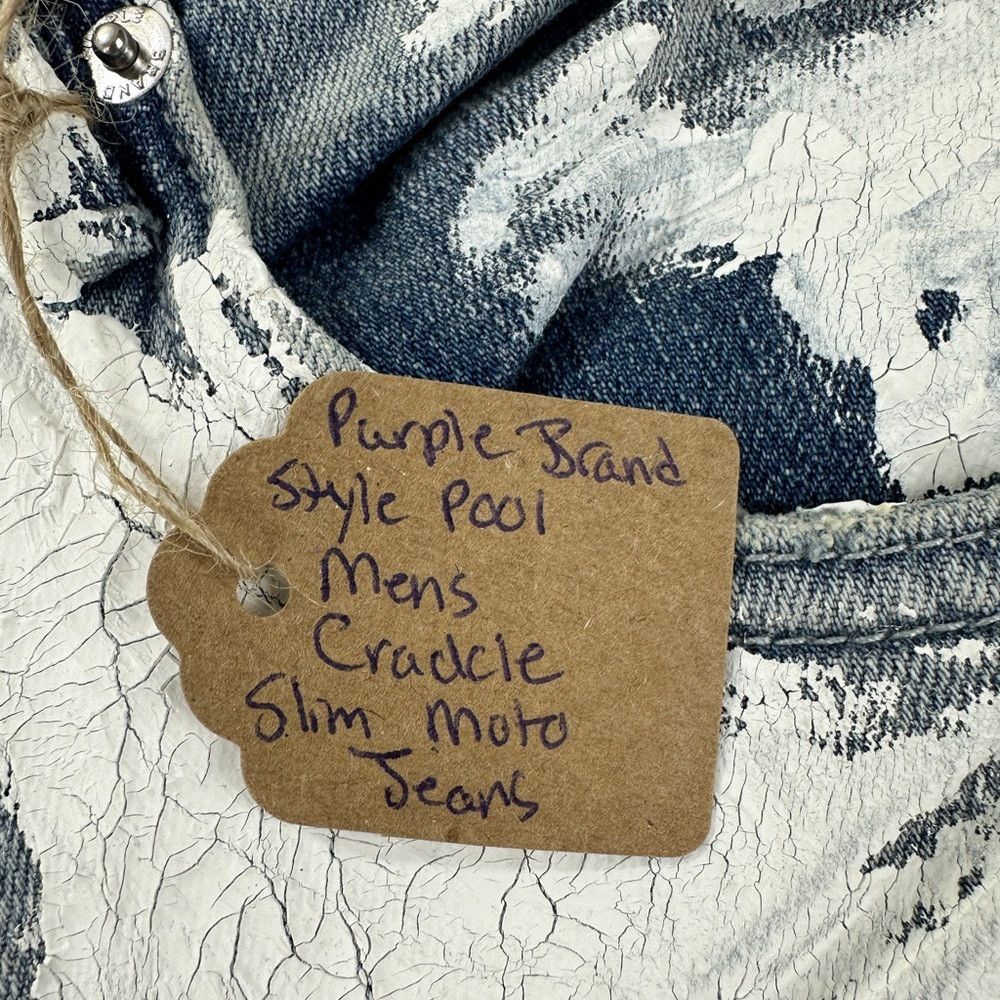 PLE
BRAND
Purple Brand
Style Pool
Mens
Crackle
Slim Moto
Jeans